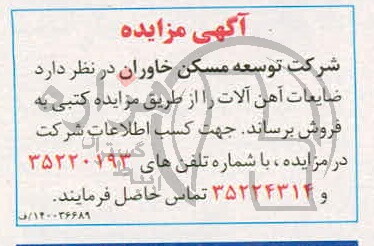 آگهی مزایده
شرکت توسعه مسکن خاوران در نظر دارد
ضایعات آهن آلات را از طریق مزایده کتبی به
فروش برساند. جهت کسب اطلاعات شرکت
در مزایده، با شماره تلفن های ۳۵۲۲۰۱۹۳
و ۳۵۲۲۴۳۱۴ تماس خاضل فرمایند.
۱۴۰۰۳۶۶۸۹/ف